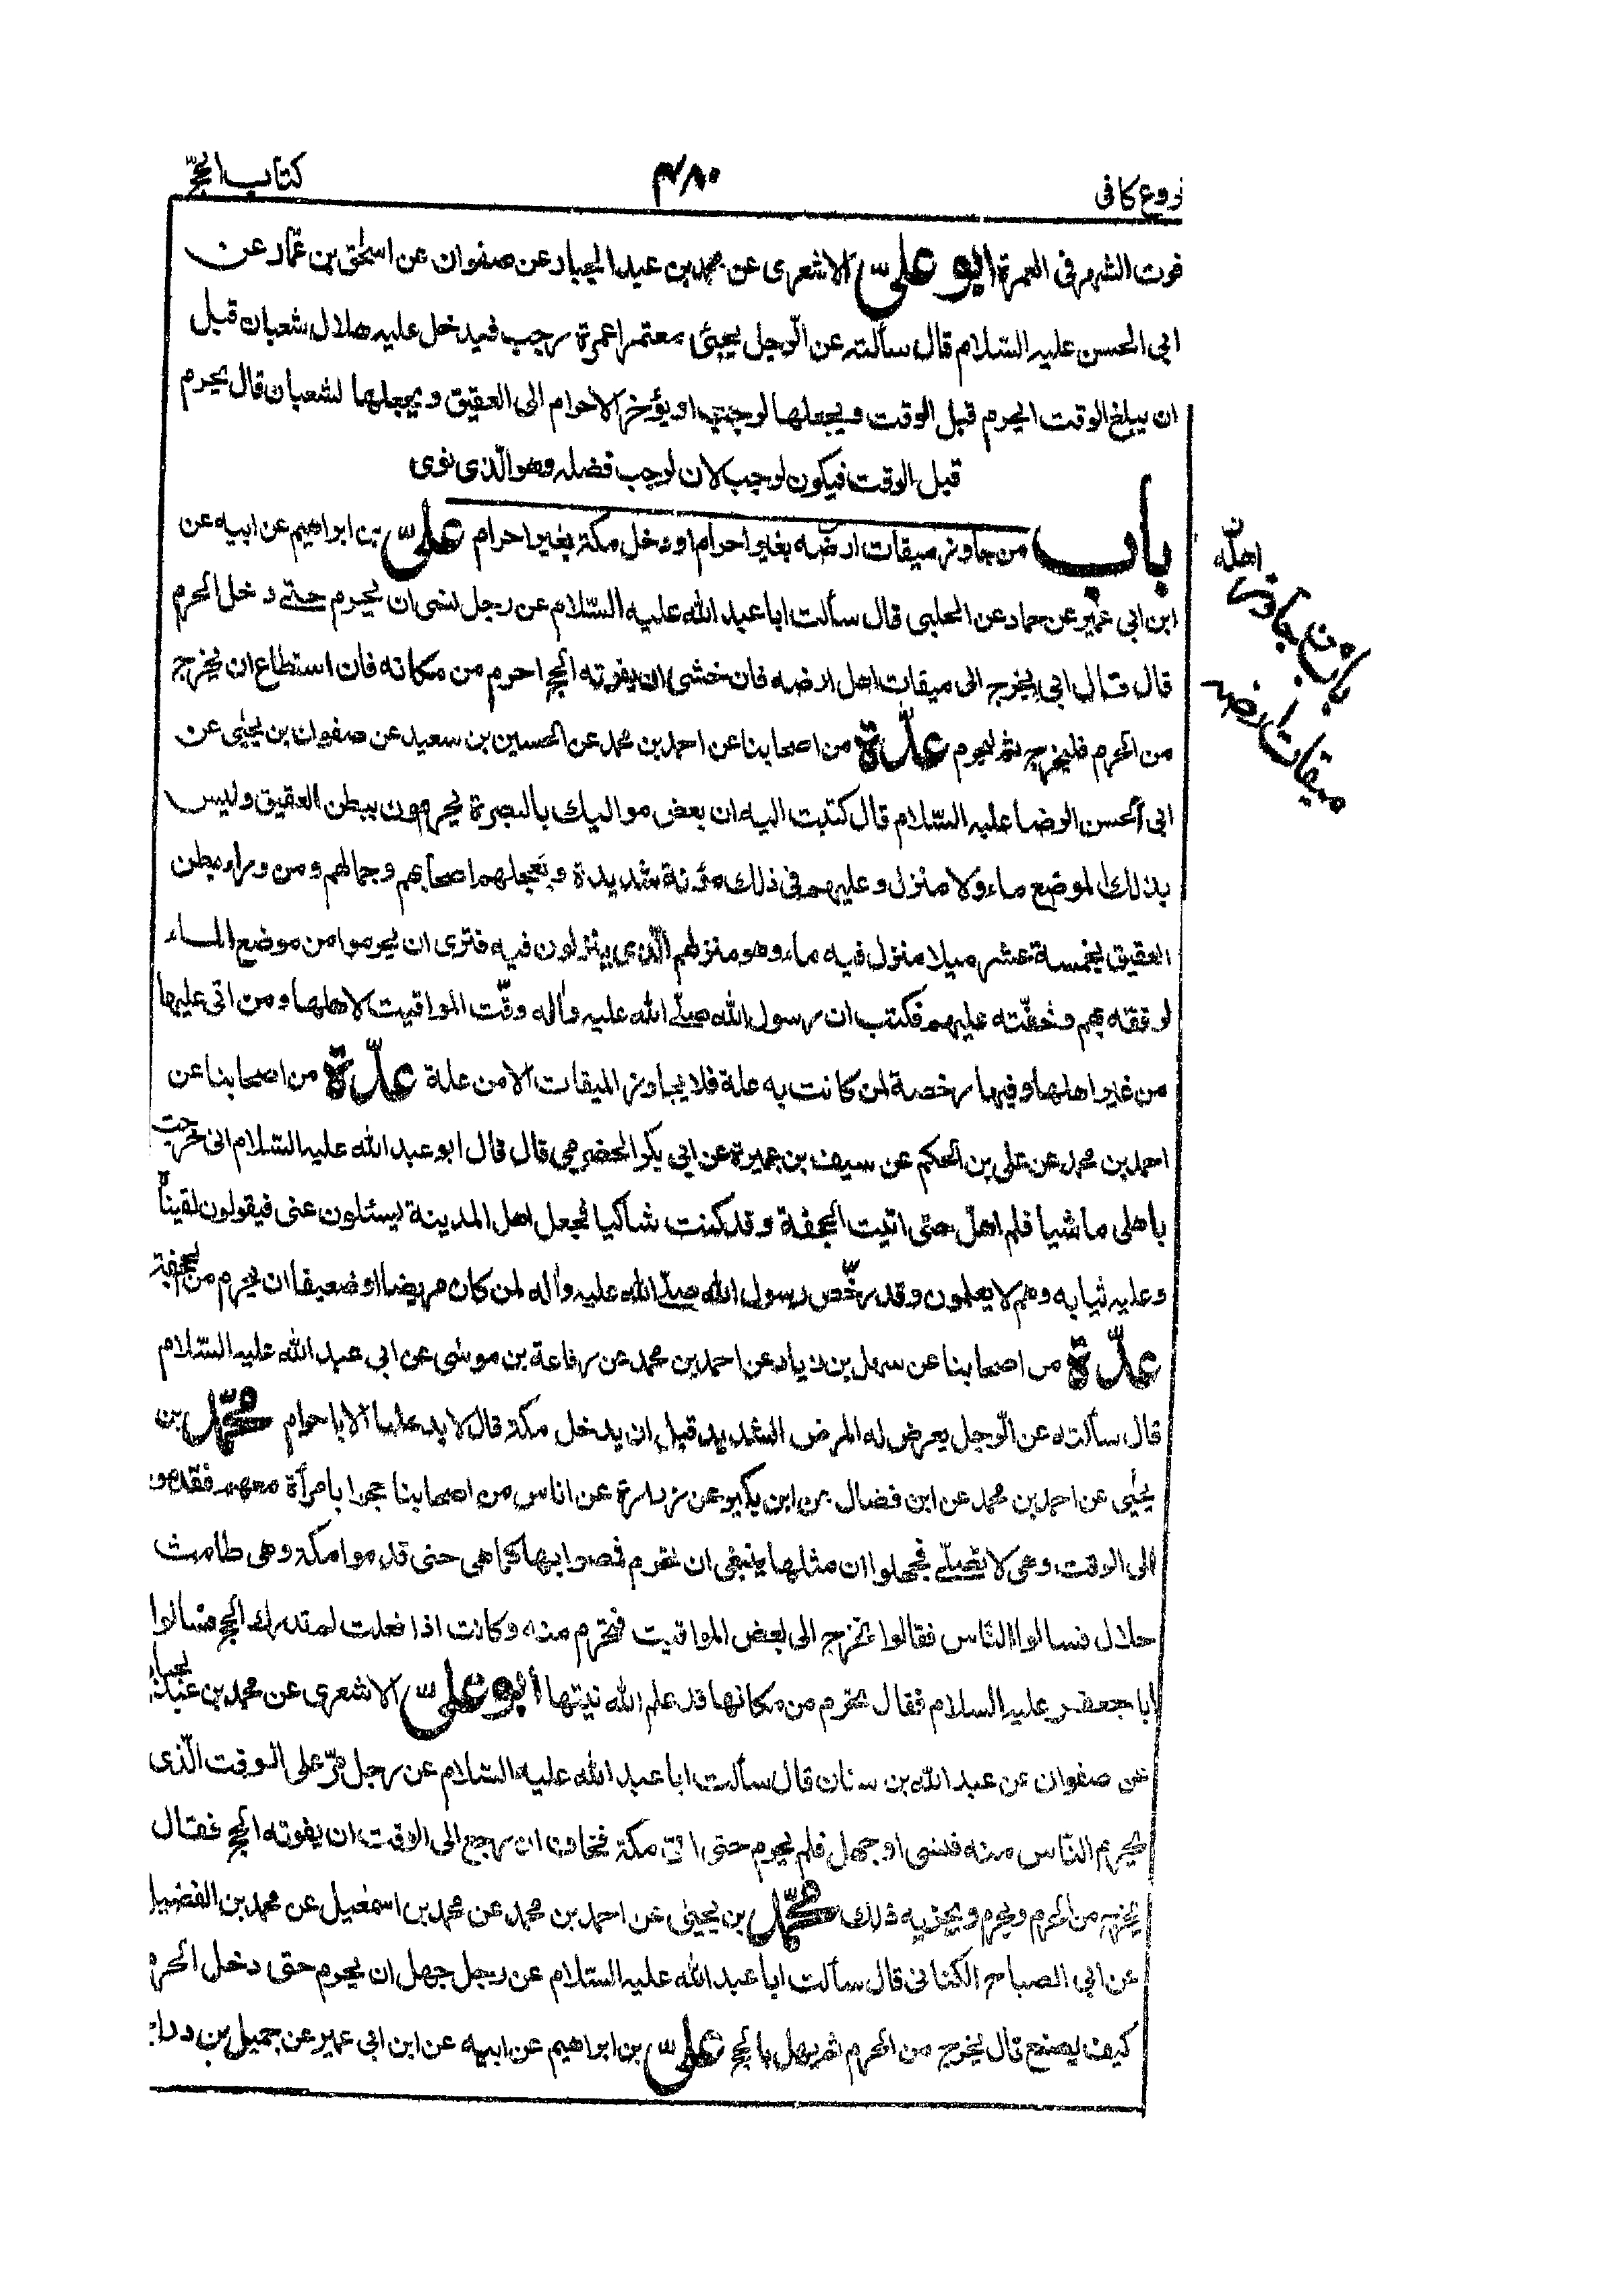 فروع كافى ۴۸۰ كتاب الحجّ
فوت الشهر فى العمرة ابو علىّ الاشعرى عن محمد بن عبد الجبار عن صفوان عن اسحق بن عمّار عن
ابى الحسن عليه السّلام قال سألته عن الرّجل يجيئ معتمرا عمرة رجب فيدخل عليه هلال شعبان قبل
ان يبلغ الوقت ايحرم قبل الوقت ويجعلها لرجب او يؤخر الاحرام الى العقيق ويجعلها لشعبان قال يحرم
قبل الوقت فيكون لرجب لان لرجب فضله وهو الّذى نوى
باب من جاوز ميقات ارضه بغير احرام او دخل مكة بغير احرام علىّ بن ابراهيم عن ابيه عن
ابن ابى عمير عن حماد عن الحلبى قال سألت ابا عبد الله عليه السّلام عن رجل نسى ان يحرم حتى دخل الحرم
قال قال ابى يخرج الى ميقات اهل ارضه فان خشى ان يفوته الحج احرم من مكانه فان استطاع ان يخرج
من الحرم فليخرج ثم ليحرم عدّة من اصحابنا عن احمد بن محمد عن الحسين بن سعيد عن صفوان بن يحيى عن
ابى الحسن الرضا عليه السّلام قال كتبت اليه ان بعض مواليك بالبصرة يحرمون ببطن العقيق وليس
بذلك الموضع ماء ولا منزل وعليهم فى ذلك مؤنة شديدة ويعجلهم اصحابهم وجمالهم ومن وراء بطن
العقيق بخمسة عشر ميلا منزل فيه ماء وهو منزلهم الّذى ينزلون فيه فترى ان يحرموا من موضع الماء
لرفقه بهم وخفّته عليهم فكتب ان رسول الله صلّى الله عليه وآله وقّت المواقيت لاهلها ومن اتى عليها
من غير اهلها وفيها رخصة لمن كانت به علة فلا يجاوز الميقات الا من علة عدّة من اصحابنا عن
احمد بن محمد عن على بن الحكم عن سيف بن عميرة عن ابى بكر الحضرمى قال قال ابو عبد الله عليه السّلام انى خرجت
باهلى ماشيا فلم اهلّ حتى اتيت الجحفة وقد كنت شاكيا فجعل اهل المدينة يسئلون عنى فيقولون لقيناه
وعليه ثيابه وهم لا يعلمون وقد رخّص رسول الله صلّى الله عليه وآله لمن كان مريضا او ضعيفا ان يحرم من الجحفة
عدّة من اصحابنا عن سهل بن زياد عن احمد بن محمد عن رفاعة بن موسى عن ابى عبد الله عليه السّلام
قال سألته عن الرّجل يعرض له المرض الشديد قبل ان يدخل مكة قال لا يدخلها الا باحرام محمّد بن
يحيى عن احمد بن محمد عن ابن فضال عن ابن بكير عن زرارة عن اناس من اصحابنا حجوا بامرأة معهم فقدموا
الى الوقت وهى لا تصلّى فجهلوا ان مثلها ينبغى ان تحرم فمضوا بها كما هى حتى قدموا مكة وهى طامث
حلال فسالوا النّاس فقالوا تخرج الى بعض المواقيت فتحرم منه وكانت اذا فعلت لم تدرك الحج فسالوا
ابا جعفر عليه السلام فقال تحرم من مكانها قد علم الله نيتها ابو علىّ الاشعرى عن محمد بن عبد الجبار
عن صفوان عن عبد الله بن سنان قال سألت ابا عبد الله عليه السّلام عن رجل مرّ على الوقت الّذى
يحرم النّاس منه فنسى او جهل فلم يحرم حتى اتى مكة فخاف ان رجع الى الوقت ان يفوته الحج فقال
يخرج من الحرم ويحرم ويجزيه ذلك محمّد بن يحيى عن احمد بن محمد عن محمد بن اسمعيل عن محمد بن الفضيل
عن ابى الصباح الكنانى قال سألت ابا عبد الله عليه السّلام عن رجل جهل ان يحرم حتى دخل الحرم
كيف يصنع قال يخرج من الحرم ثم يهل بالحج علىّ بن ابراهيم عن ابيه عن ابن ابى عمير عن جميل بن دراج
ميقات ارضه